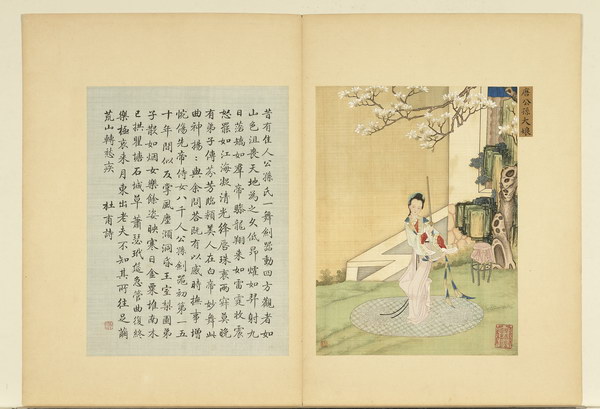 唐公孫大娘
昔有佳人公孫氏一舞劍器動四方觀者如
山色沮喪天地為之久低昂㸌如羿射九
日落矯如羣帝驂龍翔來如雷霆收震
怒罷如江海凝清光絳唇珠袖兩寂寞晚
有弟子傳芬芳臨潁美人在白帝妙舞此
曲神揚〻與余問答既有以感時撫事增
惋傷先帝侍女八千人公孫劍器初第一五
十年間似反掌風塵澒洞昏王室梨園弟
子散如烟女樂餘姿映寒日金粟堆南木
已拱瞿塘石城草蕭瑟玳筵急管曲復終
樂極哀來月東出老夫不知其所往足繭
荒山轉愁疾
杜甫詩